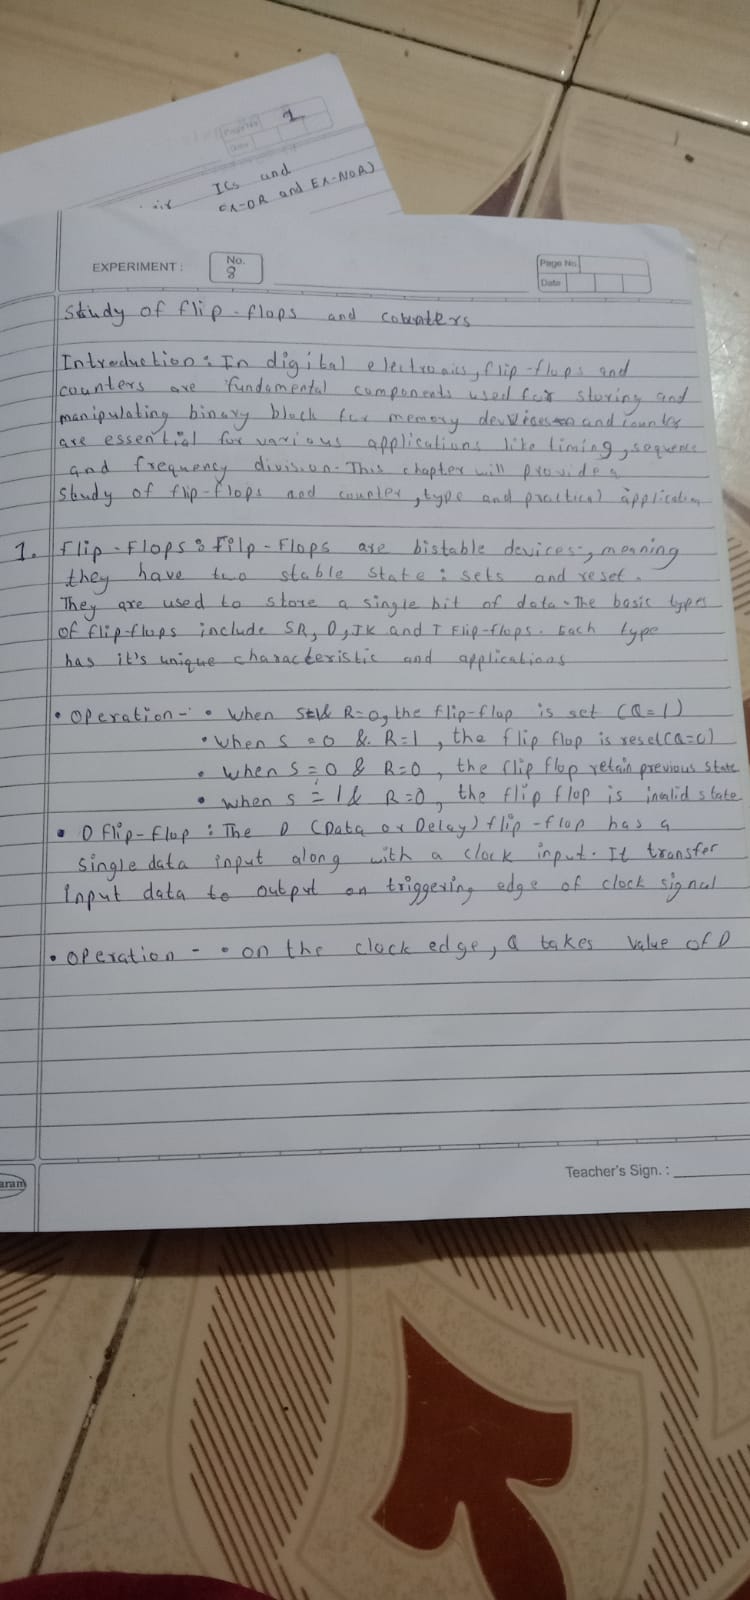 Page No. 1
Date
ICs and
EX-OR and EX-NOR)
EXPERIMENT :
No.
8
Page No.
Date
Study of flip-flops and counters
Introduction : In digital electronics, flip-flops and
counters are fundamental components used for storing and
manipulating binary block for memory devices and counter
are essential for various applications like timing, sequence
and frequency division. This chapter will provide a
study of flip-flops and counter, type and practical application
1. Flip-Flops : Filp-Flops are bistable devices, meaning
they have two stable state : sets and reset.
They are used to store a single bit of data. The basic types
of flip-flops include SR, D, JK and T Flip-flops. Each type
has it's unique characteristic and applications
• Operation - • When S=1 & R=0, the flip-flop is set (Q=1)
• When S = 0 & R=1, the flip flop is reset (Q=0)
• When S = 0 & R=0, the flip flop retain previous state
• When S = 1 & R=0, the flip flop is invalid state
• D Flip-flop : The D (Data or Delay) flip-flop has a
single data input along with a clock input. It transfer
Input data to output on triggering edge of clock signal
• Operation - • on the clock edge, Q takes value of D
Teacher's Sign. :
aram